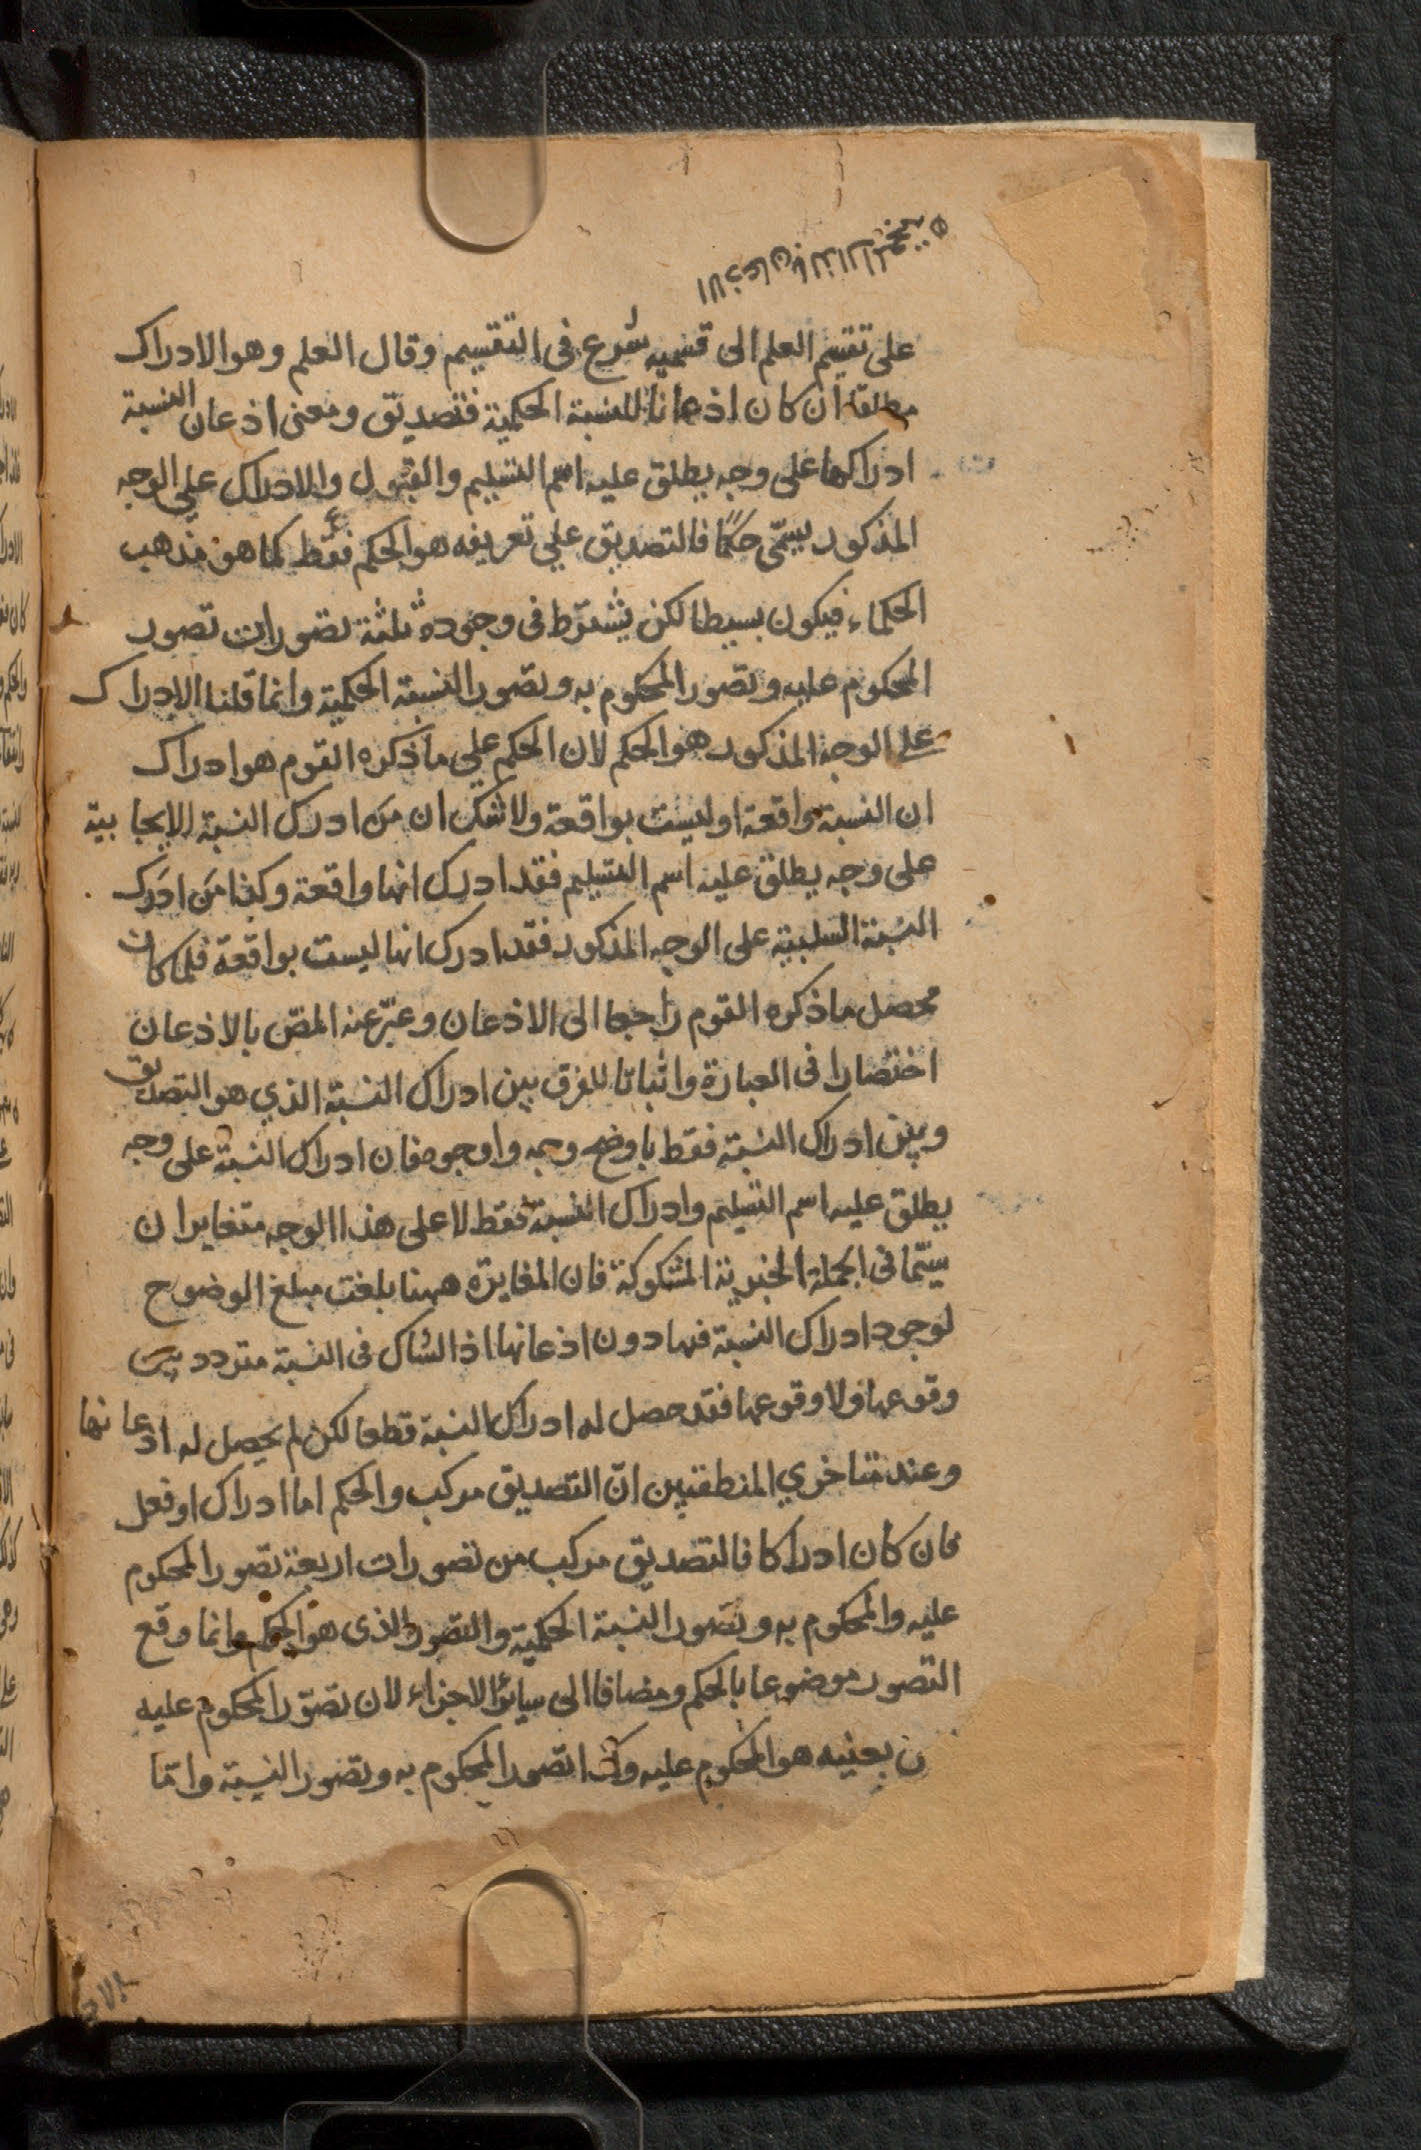 على تقيم العلم الى قسميه شرع فى التقسيم وقال العلم وهو الادراك
مطلقا ان كان اذعانا للنسبة الحكمية فتصديق ومعنى اذعان النسبة
ادراكها على وجه يطلق عليه اسم التسليم والقبول والادراك على الوجه
المذكور يسمّى حكمًا فالتصديق علي تعريفه هو الحكم فقط كما هو مذهب
الحكماء فيكون بسيطا لكن يشترط فى وجوده ثلثة تصورات تصور
المحكوم عليه وتصور المحكوم به وتصور النسبة الحكمية وانما قلنا الادراك
على الوجه المذكور هو الحكم لان الحكم على ما ذكره القوم هو ادراك
ان النسبة واقعة او ليست بواقعة ولا شك ان من ادرك النسبة الايجابية
على وجه يطلق عليه اسم التسليم فقد ادرك انها واقعة وكذا مَن ادَرك
النسبة السلبية على الوجه المذكور فقد ادرك انها ليست بواقعة فلما كان
محصل ما ذكره القوم راجعا الى الاذعان وعبّر عنه المصّ بالاذعان
اختصارا فى العبارة واثباتا للفرق بين ادراك النسبة الذي هو التصديق
وبين ادراك النسبة فقط باوضح وجه واوجوه فان ادراك النسبة على وجه
يطلق عليه اسم التسليم وادراك النسبة فقط لا على هذا الوجه متغايران
سيّما فى الجملة الخبرية المشكوكة فان المغايرة ههنا بلغت مبلغ الوضوح
لوجود ادراك النسبة فيها دون اذعانها اذ الشاك فى النسبة متردد بين
وقوعها ولا وقوعها فقد حصل له ادراك النسبة قطعا لكن لم يحصل له اذعانها
وعند متاخري المنطقيين انّ التصديق مركب والحكم اما ادراك او فعل
فان كان ادراكا فالتصديق مركب من تصورات اربعة تصور المحكوم
عليه والمحكوم به وتصور النسبة الحكمية والتصور الذى هو الحكم وانما وقع
التصور موضوعا بالحكم ومضافا الى سائر الاجزاء لان تصوّر المحكوم عليه
ن بعينه هو المحكوم عليه وكذا تصور المحكوم به وتصور النسبة وامّا